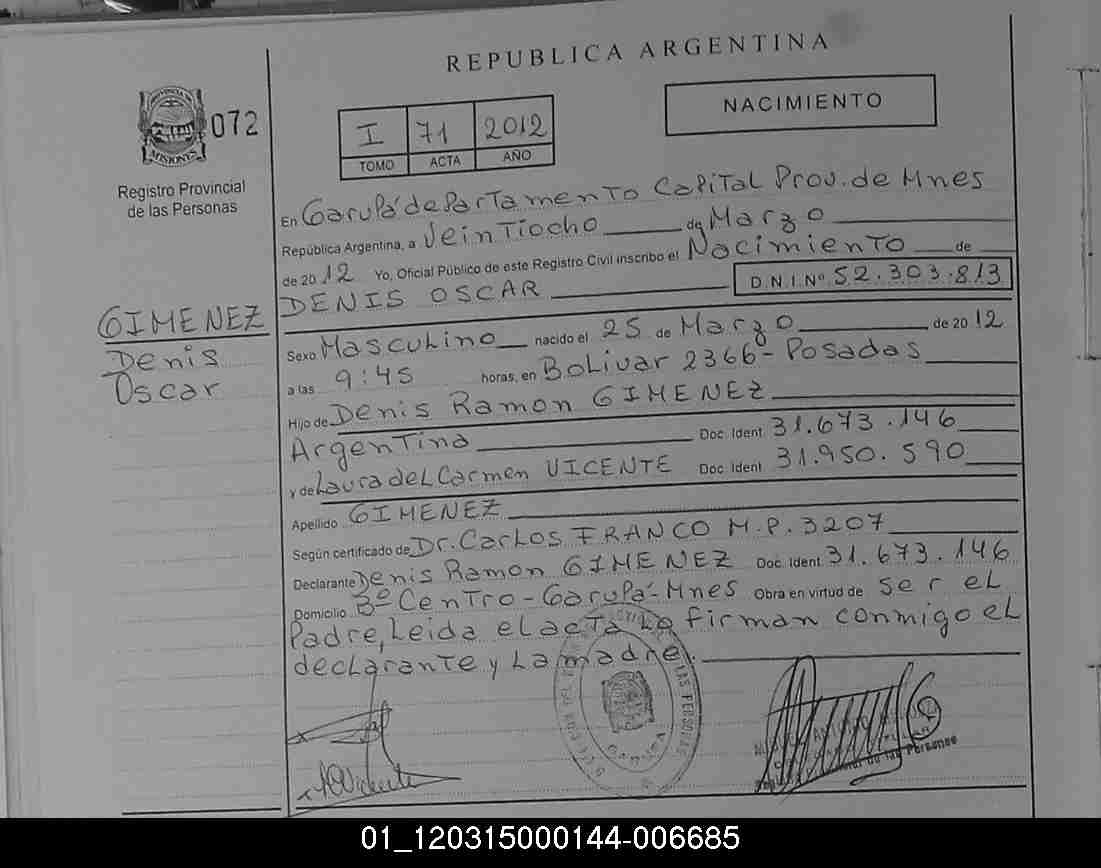 REPUBLICA ARGENTINA
072
I 71 2012
TOMO ACTA AÑO
NACIMIENTO
PROVINCIA DE MISIONES
Registro Provincial
de las Personas
En Garupá departamento Capital Prov. de Mnes
República Argentina, a Veintiocho de Marzo
de 2012 Yo, Oficial Público de este Registro Civil inscribo el Nacimiento de
DENIS OSCAR D.N.I.Nº 52.303.813
GIMENEZ
Denis
Oscar
Sexo Masculino nacido el 25 de Marzo de 2012
a las 9:45 horas, en Bolivar 2366- Posadas
Hijo de Denis Ramon GIMENEZ
Argentina Doc. Ident 31.673.146
y de Laura del Carmen VICENTE Doc. Ident 31.950.590
Apellido GIMENEZ
Según certificado de Dr. Carlos FRANCO M.P. 3207
Declarante Denis Ramon GIMENEZ Doc. Ident 31.673.146
Domicilio Bº Centro-Garupá-Mnes Obra en virtud de ser el
Padre, Leida el acta la firman conmigo el
declarante y la madre.
LAS PERSONAS
GARUPA
de las Personas
01_120315000144-006685